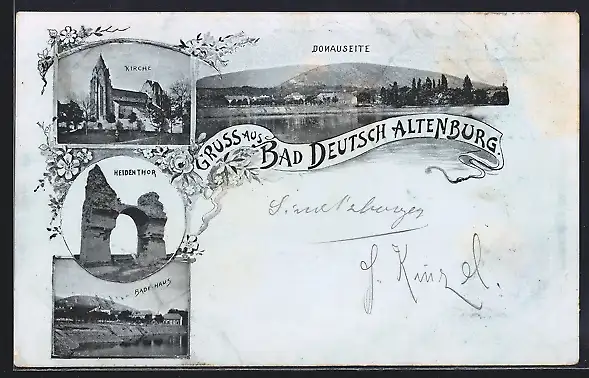 DONAUSEITE
KIRCHE
GRUSS AUS BAD DEUTSCH ALTENBURG.
HEIDENTHOR
BADEHAUS
J. Kinzel.